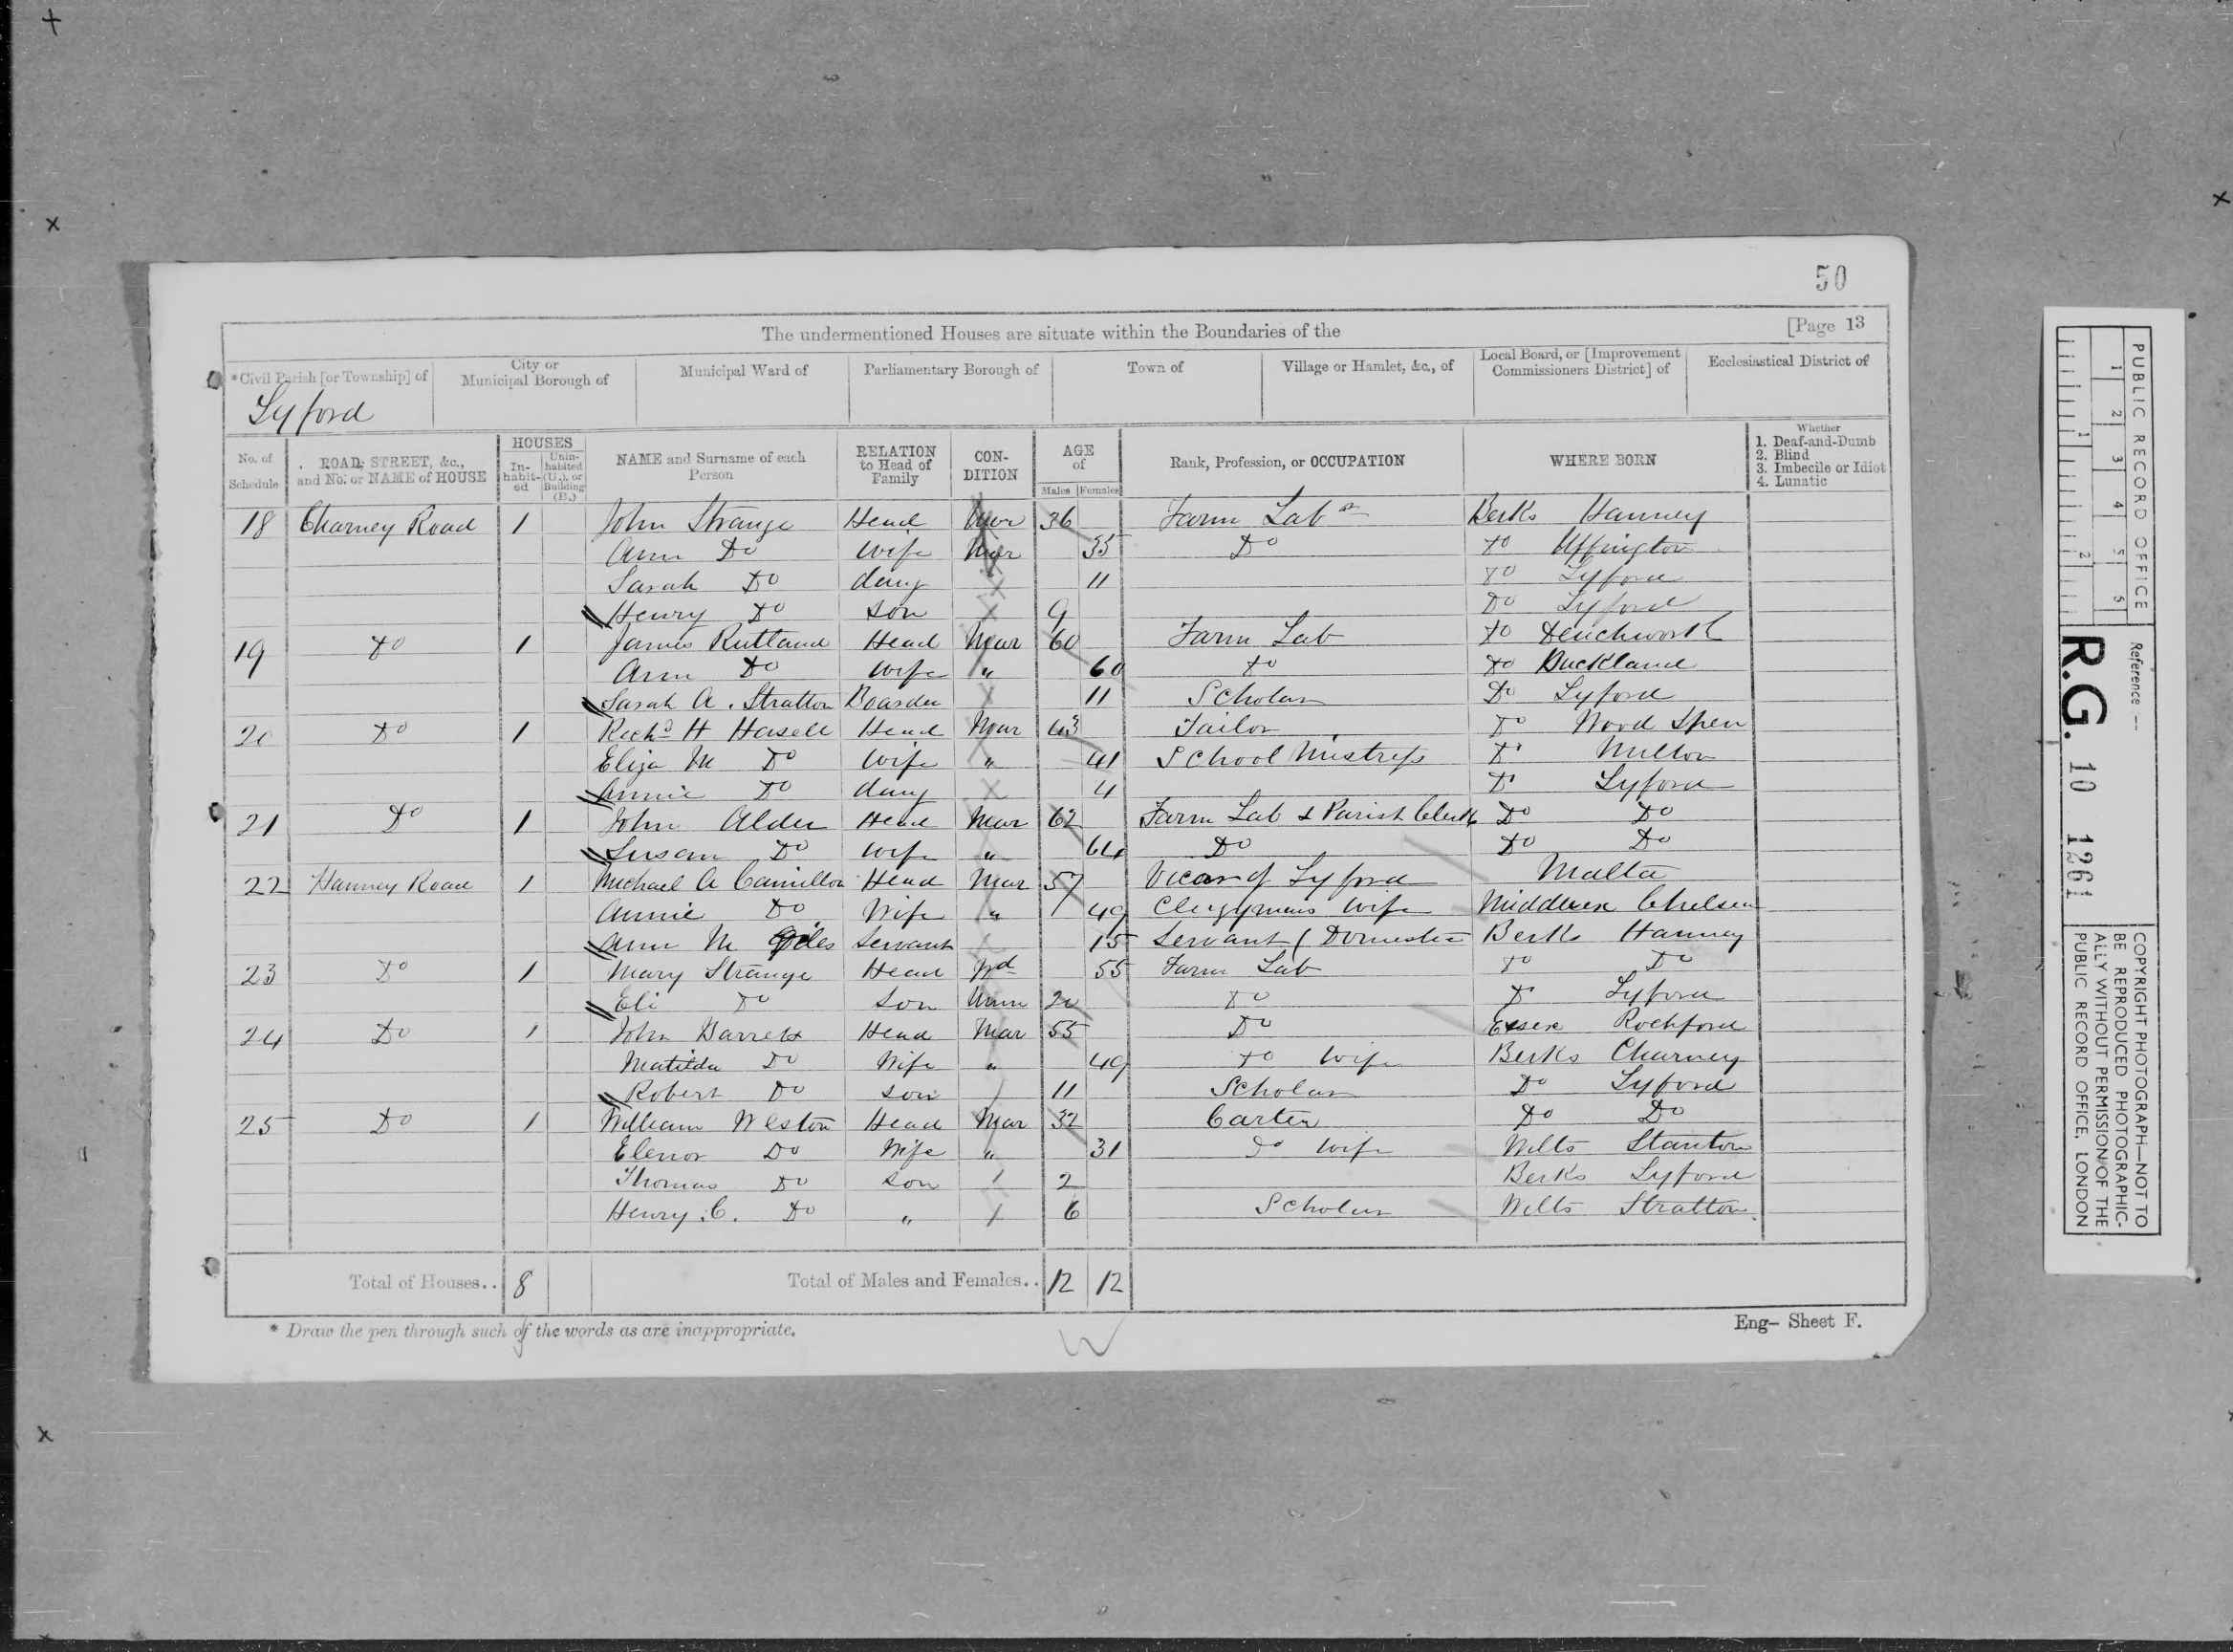 50
The undermentioned Houses are situate within the Boundaries of the [Page 13
*Civil Parish [or Township] of City or Municipal Borough of Municipal Ward of Parliamentary Borough of Town of Village or Hamlet, &c., of Local Board, or [Improvement Commissioners District] of Ecclesiastical District of
Lyford
No. of Schedule ROAD, STREET, &c., and No. or NAME of HOUSE HOUSES In-habit-ed Unin-habited (U.), or Building (B.) NAME and Surname of each Person RELATION to Head of Family CON-DITION AGE of Males Females Rank, Profession, or OCCUPATION WHERE BORN Whether 1. Deaf-and-Dumb 2. Blind 3. Imbecile or Idiot 4. Lunatic
18 Charney Road 1 John Strange Head Mar 36 Farm Labr Berks Hanney
Ann Do Wife Mar 35 Do Do Uffington
Sarah Do daug 11 Do Lyford
Henry Do son 9 Do Lyford
19 Do 1 James Rutland Head Mar 60 Farm Lab Do Denchworth
Ann Do Wife " 60 Do Do Buckland
Sarah A. Stratton Boarder 11 Scholar Do Lyford
20 Do 1 Richd H Hasell Head Mar 43 Tailor Do Wood Spen
Eliza M Do Wife " 41 School Mistress Do Milton
Annie Do daug 4 Do Lyford
21 Do 1 John Alder Head Mar 62 Farm Lab & Parish Clerk Do Do
Susan Do Wife " 64 Do Do Do
22 Hanney Road 1 Michael A Camilleri Head Mar 57 Vicar of Lyford Malta
Annie Do Wife " 49 Clergymans Wife Middlesex Chelsea
Ann M Giles Servant 15 Servant (Domestic Berks Hanney
23 Do 1 Mary Strange Head Wd 55 Farm Lab Do Do
Eli Do Son Unm 20 Do Do Lyford
24 Do 1 John Barrett Head Mar 55 Do Essex Rochford
Matilda Do Wife " 49 Do Wife Berks Charney
Robert Do son 11 Scholar Do Lyford
25 Do 1 William Weston Head Mar 32 Carter Do Do
Elenor Do Wife " 31 Do Wife Wilts Stanton
Thomas Do Son 2 Berks Lyford
Henry C. Do " 6 Scholar Wilts Stratton
Total of Houses.. 8 Total of Males and Females.. 12 12
* Draw the pen through such of the words as are inappropriate. Eng- Sheet F.
PUBLIC RECORD OFFICE
1 2 3 4 5 6
1 2
Reference :-
R.G. 10 1261
COPYRIGHT PHOTOGRAPH—NOT TO
BE REPRODUCED PHOTOGRAPHIC-
ALLY WITHOUT PERMISSION OF THE
PUBLIC RECORD OFFICE, LONDON